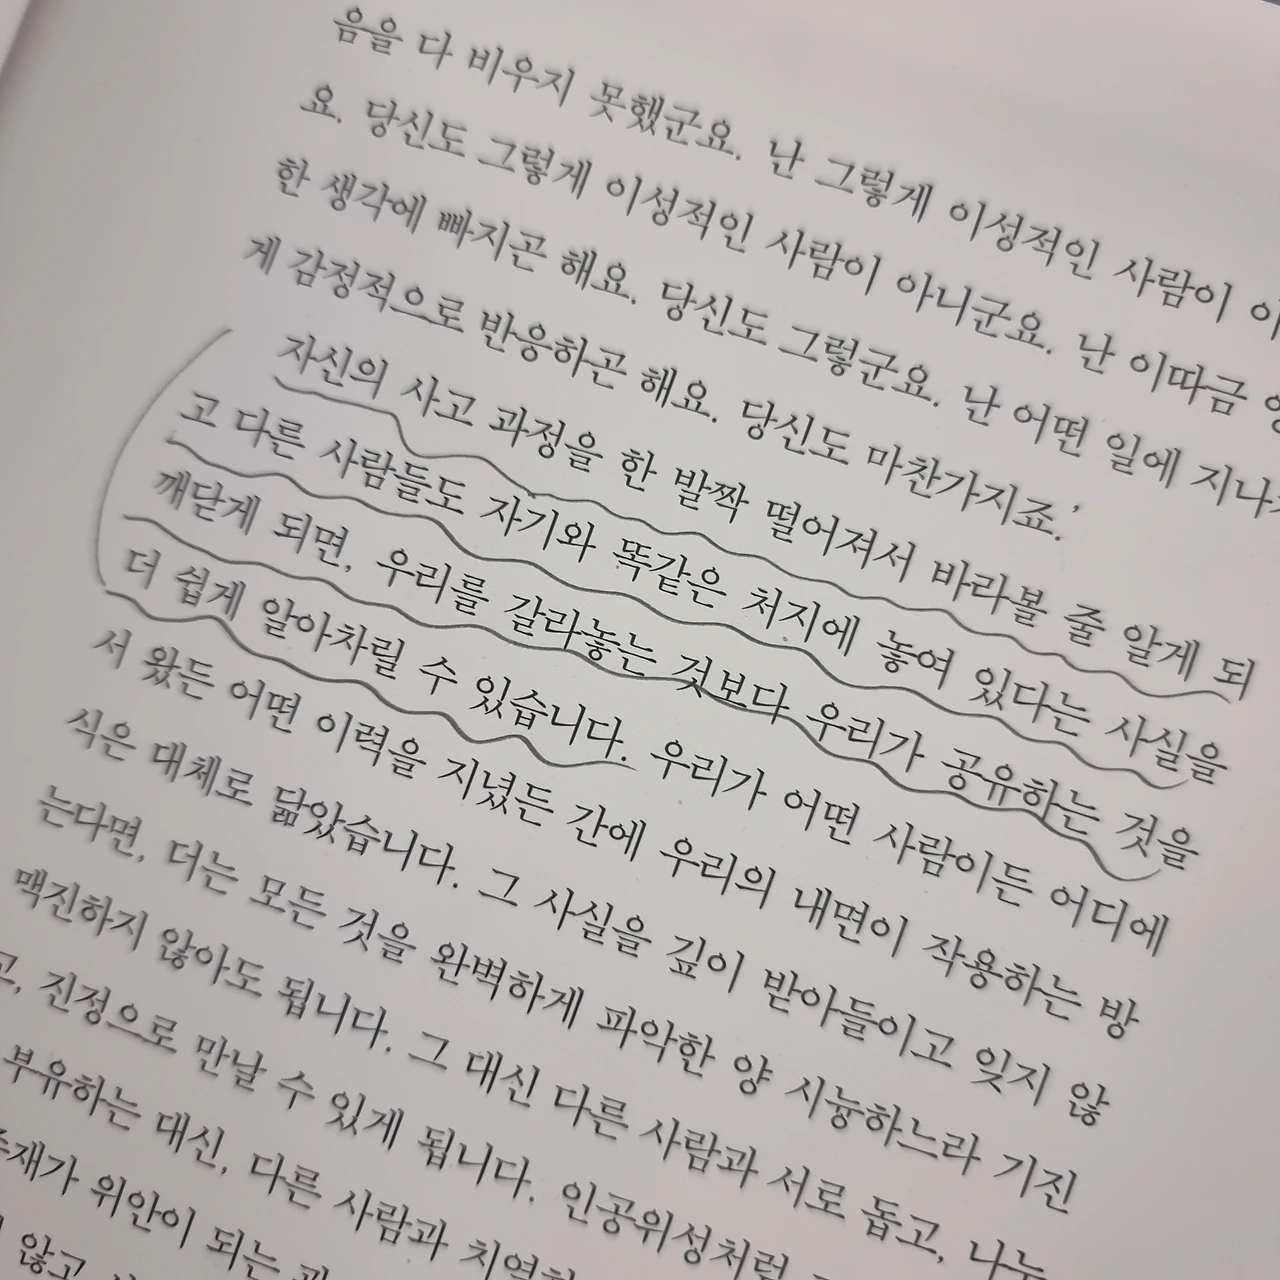 음을 다 비우지 못했군요. 난 그렇게 이성적인 사람이
요. 당신도 그렇게 이성적인 사람이 아니군요. 난 이따금
한 생각에 빠지곤 해요. 당신도 그렇군요. 난 어떤 일에
게 감정적으로 반응하곤 해요. 당신도 마찬가지죠.’
자신의 사고 과정을 한 발짝 떨어져서 바라볼 줄 알게 되
고 다른 사람들도 자기와 똑같은 처지에 놓여 있다는 사실을
깨닫게 되면, 우리를 갈라놓는 것보다 우리가 공유하는 것을
더 쉽게 알아차릴 수 있습니다. 우리가 어떤 사람이든 어디에
서 왔든 어떤 이력을 지녔든 간에 우리의 내면이 작용하는 방
식은 대체로 닮았습니다. 그 사실을 깊이 받아들이고 잊지 않
는다면, 더는 모든 것을 완벽하게 파악한 양 시늉하느라 기진
맥진하지 않아도 됩니다. 그 대신 다른 사람과 서로 돕고, 나누
고, 진정으로 만날 수 있게 됩니다. 인공위성처럼
부유하는 대신, 다른 사람과
존재가 위안이 되는
않고